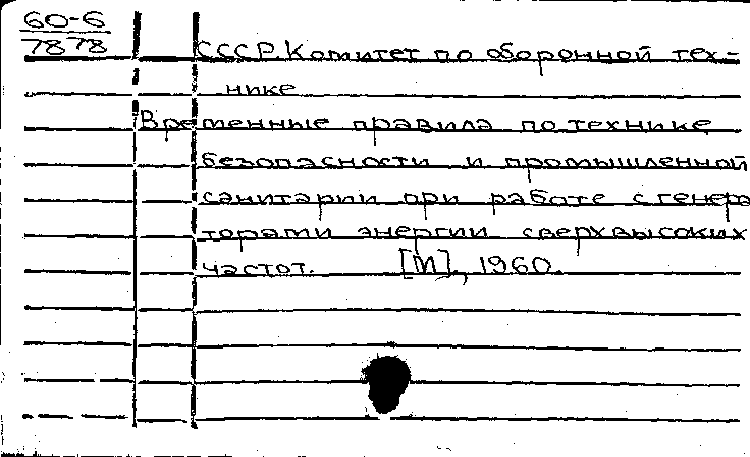 60-6
7878
СССР. Комитет по оборонной тех-
нике
Временные правила по технике
безопасности и промышленной
санитарии при работе с генера
торами энергии сверхвысоких
частот. [М], 1960.